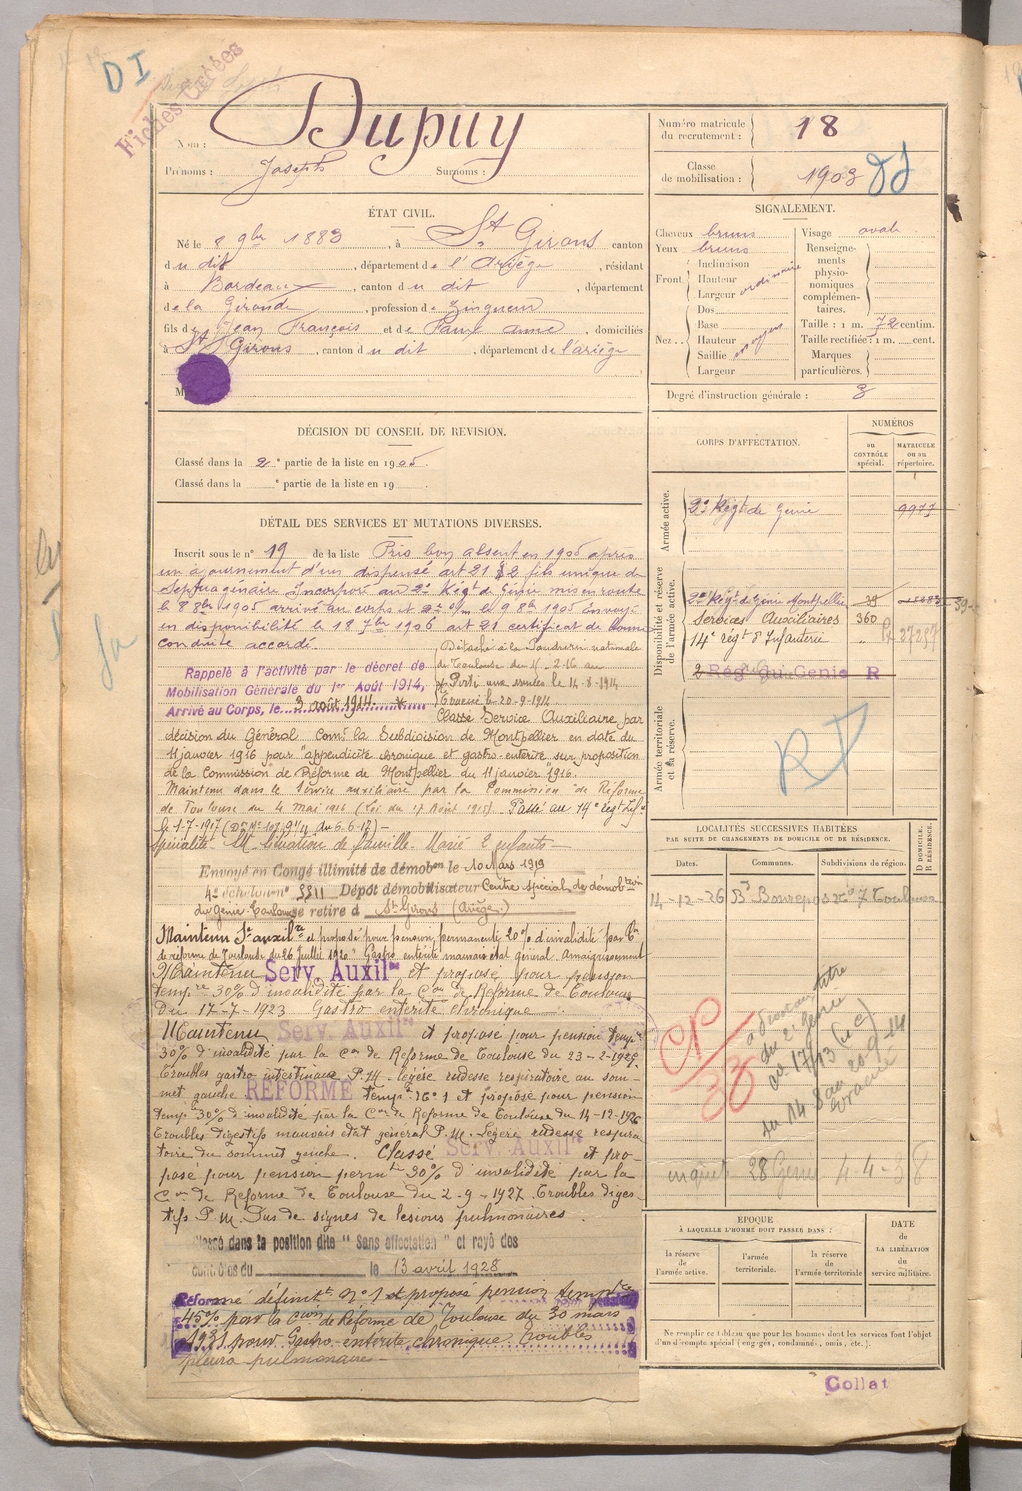 DI
Fiches Créées
Nom : Dupuy
Prénoms : Joseph Surnoms :
Numéro matricule du recrutement : 18
Classe de mobilisation : 1903
ÉTAT CIVIL.
Né le 8 9bre 1883, à St Girons canton
du dit, département de l'Ariège, résidant
à Bordeaux, canton du dit, département
de la Gironde, profession de Zingueur
fils de Jean François et de Paux anne, domiciliés
à St Girons, canton du dit, département de l'ariège
SIGNALEMENT.
Cheveux bruns
Yeux bruns
Front Inclinaison
Hauteur
Largeur ordinaire
Nez.. Dos
Base
Hauteur moyen
Saillie
Largeur
Visage ovale
Renseignements physionomiques complémentaires.
Taille : 1 m. 72 centim.
Taille rectifiée : 1 m. cent.
Marques particulières.
Degré d'instruction générale : 3
DÉCISION DU CONSEIL DE REVISION.
Classé dans la 2e partie de la liste en 1905.
Classé dans la e partie de la liste en 19
CORPS D'AFFECTATION.
NUMÉROS
au CONTRÔLE spécial.
MATRICULE ou au répertoire.
Armée active.
2e Régt de Génie 9977
Disponibilité et réserve de l'armée active.
2e Régt de Génie Montpellier 39
Services Auxiliaires 360
14e régt d'Infanterie
2 Rég du Genie R
Armée territoriale et sa réserve.
DÉTAIL DES SERVICES ET MUTATIONS DIVERSES.
Inscrit sous le n° 19 de la liste Pris bon absent en 1905 après
un ajournement d'un dispensé art 21 § 2 fils unique de
Septuagénaire Incorporé au 2e Régt de Génie mis en route
le 8 8bre 1905 arrivé au corps et 2e s/m le 9 8bre 1905 Envoyé
en disponibilité le 18 7bre 1906 art 21 certificat de bonne
conduite accordé.
Rappelé à l'activité par le décret de
Mobilisation Générale du 1er Août 1914,
Arrivé au Corps, le 3 août 1914
Détaché à la Poudrerie nationale
de Toulouse du 15-2-16 au
Parti aux armées le 14-8-1914
Évacué le 20-9-1914
Classé Service Auxiliaire par
décision du Général Comt la Subdivision de Montpellier en date du
11 janvier 1916 pour "appendicite chronique et gastro-entérite sur proposition
de la Commission de Réforme de Montpellier du 11 janvier 1916.
Maintenu dans le service auxiliaire par la Commission de Réforme
de Toulouse du 4 mai 1916 (Loi du 17 Août 1915) Passé au 14e régt d'Infie
le 1-7-1917
Situation de famille Marié 2 enfants
Envoyé en Congé illimité de démobon le 10 Mars 1919
4e échelon n° 3311 Dépôt démobilisateur Centre spécial de démobtion
du Génie Toulouse se retire à St Girons (Ariège)
Maintenu Sce auxilre et proposé pour pension permanente 20% d'invalidité par Con
de réforme de Toulouse du 26 juillet 1920 Gastro entérite mauvais état général Amaigrissement
Maintenu Serv. Auxilre et proposé pour pension
tempre 30% d'invalidité par la Con de Réforme de Toulouse
Du 17-7-1923 Gastro entérite chronique
Maintenu Serv. Auxilre et proposé pour pension tempre
30% d'invalidité par la Con de Réforme de Toulouse du 23-2-1925
Troubles gastro intestinaux P.M. légère rudesse respiratoire au sommet
gauche RÉFORMÉ tempre N° 1 et proposé pour pension
tempre 30% d'invalidité par la Con de Réforme de Toulouse du 14-12-1926
Troubles digestifs mauvais état général P.M. Légère rudesse respiratoire
du sommet gauche. Classé Serv. Auxilre et proposé
pour pension permte 30% d'invalidité par la
Con de Réforme de Toulouse du 2-9-1927 Troubles digestifs
P.M. Pas de signes de lésions pulmonaires.
Classé dans la position dite "Sans affectation" et rayé des
contrôles du le 13 avril 1928
Réformé définitt N° 1 et proposé pension
45% par la Con de Réforme de Toulouse du 30 mars
1931 pour Gastro entérite chronique Troubles
pleuro pulmonaires
LOCALITÉS SUCCESSIVES HABITÉES
PAR SUITE DE CHANGEMENTS DE DOMICILE OU DE RÉSIDENCE.
Dates. Communes. Subdivisions de région. D DOMICILE. R RÉSIDENCE.
14-12-26 Bd Bonrepos no 7 Toulouse
CP
33
du 14-8 au 20-9-14
28 Génie 4-4-38
EPOQUE
À LAQUELLE L'HOMME DOIT PASSER DANS :
la réserve de l'armée active. l'armée territoriale. la réserve de l'armée territoriale
DATE de LA LIBÉRATION du service militaire.
Ne remplir ce tableau que pour les hommes dont les services font l'objet
d'un décompte spécial (engagés, condamnés, omis, etc.).
Collat